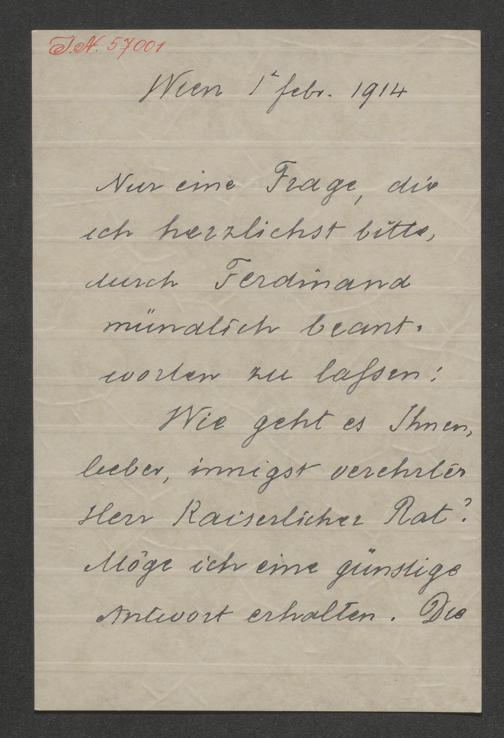 J.N. 57001
Wien 1r febr. 1914
Nur eine Frage, die
ich herzlichst bitte,
durch Ferdinand
mündlich beant-
worten zu laßen:
Wie geht es Ihnen,
lieber, innigst verehrter
Herr Kaiserlicher Rat?
Möge ich eine günstige
Antwort erhalten. Die